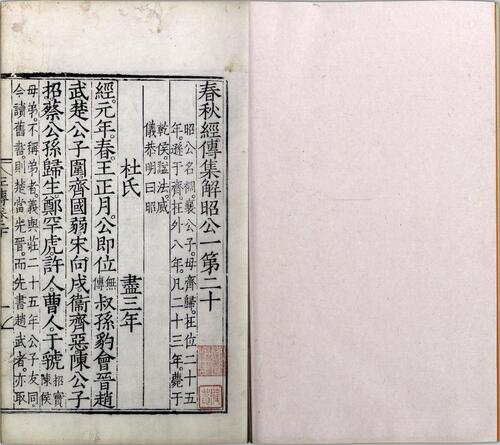 春秋經傳集解昭公一第二十
昭公名裯襄公子母齊歸在位二十五
年遜于齊在外八年凡二十三年薨于
乾侯謚法威
儀恭明曰昭
杜氏 盡三年
經元年。春。王正月。公即位無傳叔孫豹會晉趙
武楚公子圍齊國弱宋向戌衞齊惡陳公子
招蔡公孫歸生鄭罕虎許人。曹人。于虢招實陳侯
母弟。不稱弟者。義與莊二十五年公子友同。
今讀舊書。則楚當先晉。而先書趙武者。亦取